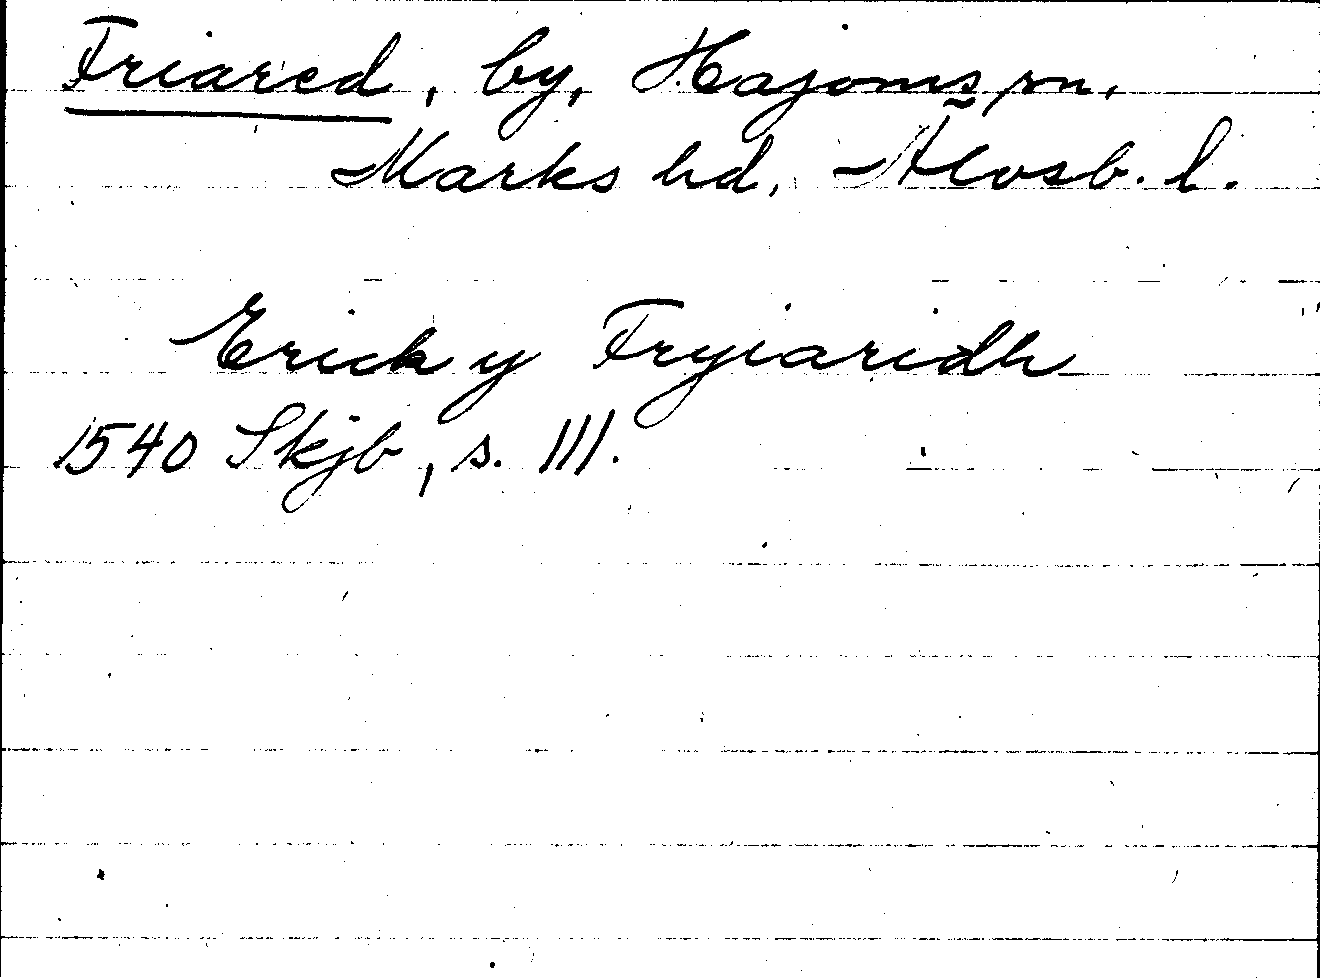 Friared, by, Hajoms sn,
Marks hd, Älvsb. l.
Erick y Fryiaridh
1540 Skjb, s. 111.